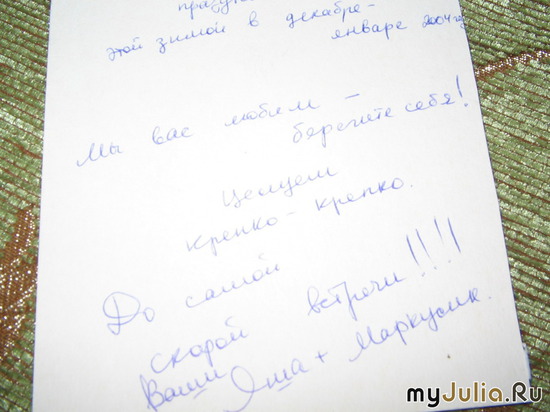 этой зимой в декабре-
январе 2004 г.
Мы вас любим –
берегите себя!
Целуем
крепко-крепко.
До самой
скорой встречи!!!!
Ваши Яша + Маркусик.
myJulia.Ru